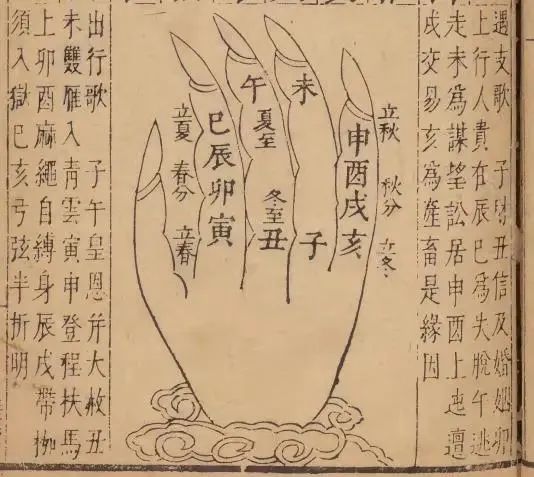 遇支歌 子財丑信及婚姻卯
上行人貴在辰巳為失脫午逃
走未為謀望訟居申酉上迍邅
戌交易亥為產畜是緣因
立秋 秋分 立冬
申酉戌亥
未 子
午 夏至 冬至 丑
巳辰卯寅
立夏 春分 立春
出行歌 子午皇恩并大赦丑
未雙雁入青雲寅申登程扶馬
上卯酉麻繩自縛身辰戌帶枷
須入獄巳亥弓弦半折明